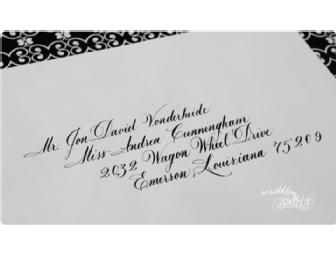 Mr. Jon David Vonderheide
Miss Andrea Cunningham
2032 Wagon Wheel Drive
Emerson, Louisiana 75209
scribbling